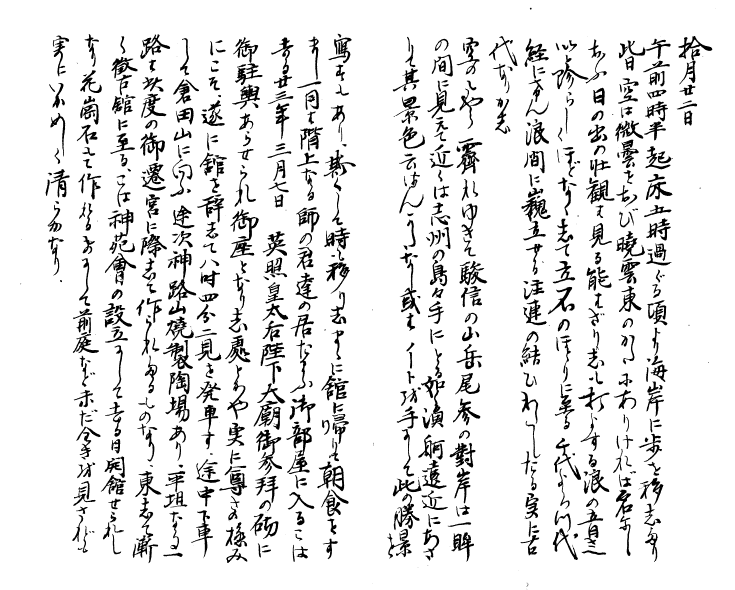 拾月廿二日
午前四時半起床五時過ぐる頃より海岸に歩を移しゝなり
此日空は微曇をおび暁雲東のかたにありければ名にし
おふ日の出の壮観は見る能はざりしも打よする浪の音さへ
いと珍らしくほどなくして立石のほとりに至る千代よろづ代
経にけん浪間に巍立せる注連の結ひわたしたる実に古
代なりかし
空のやゝ霽れゆきて駿信の山岳尾参の對岸は一眸
の間に見えて近くは志州の島々手にとる如く漁舸遠近にあさ
りて其景色云はんかたなし或はノート坊手にして此の勝景を
寫すもあり、斯くして時も移りしまゝに館に帰りて朝食をす
まし一同は階上なる師の君達の居たまふ御部屋に入るこは
去る廿三年三月七日 英照皇太后陛下大廟御参拝の砌に
御駐輿あらせられ御座となりし處とかや実に尊さの極み
にこそ、遂に館を辞して八時四分二見を発車す、途中下車
して倉田山に向ふ途次神路山焼製陶場あり、平坦なる一
路は此度の御遷宮に際して作られたるものなり、東して漸
く徴古館に至る、こは神苑會の設立にして去る日開館せられし
なり花崗石にて作れるよしにして前庭など未だ全き坊見ざれども
実にいかめしく清らかなり、